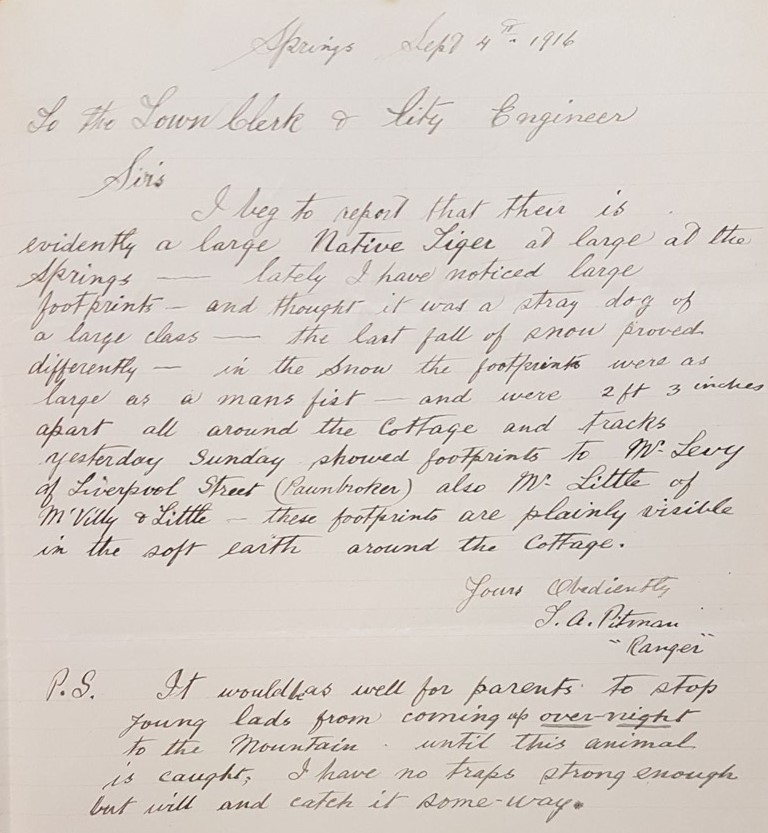 Springs Sept 4th. 1916
To the Town Clerk & City Engineer
Sirs
I beg to report that their is
evidently a large Native Tiger at large at the
Springs — lately I have noticed large
footprints – and thought it was a stray dog of
a large class — the last fall of snow proved
differently – in the Snow the footprints were as
large as a mans fist – and were 2 ft 3 inches
apart all around the Cottage and tracks
yesterday Sunday showed footprints to Mr Levy
of Liverpool Street (Pawnbroker) also Mr Little of
McVilly & Little – these footprints are plainly visible
in the soft earth around the Cottage.
Yours Obediently
T. A. Pitman
"Ranger"
P.S. It would be as well for parents to stop
young lads from coming up over-night
to the Mountain until this animal
is caught; I have no traps strong enough
but will and catch it some-way.